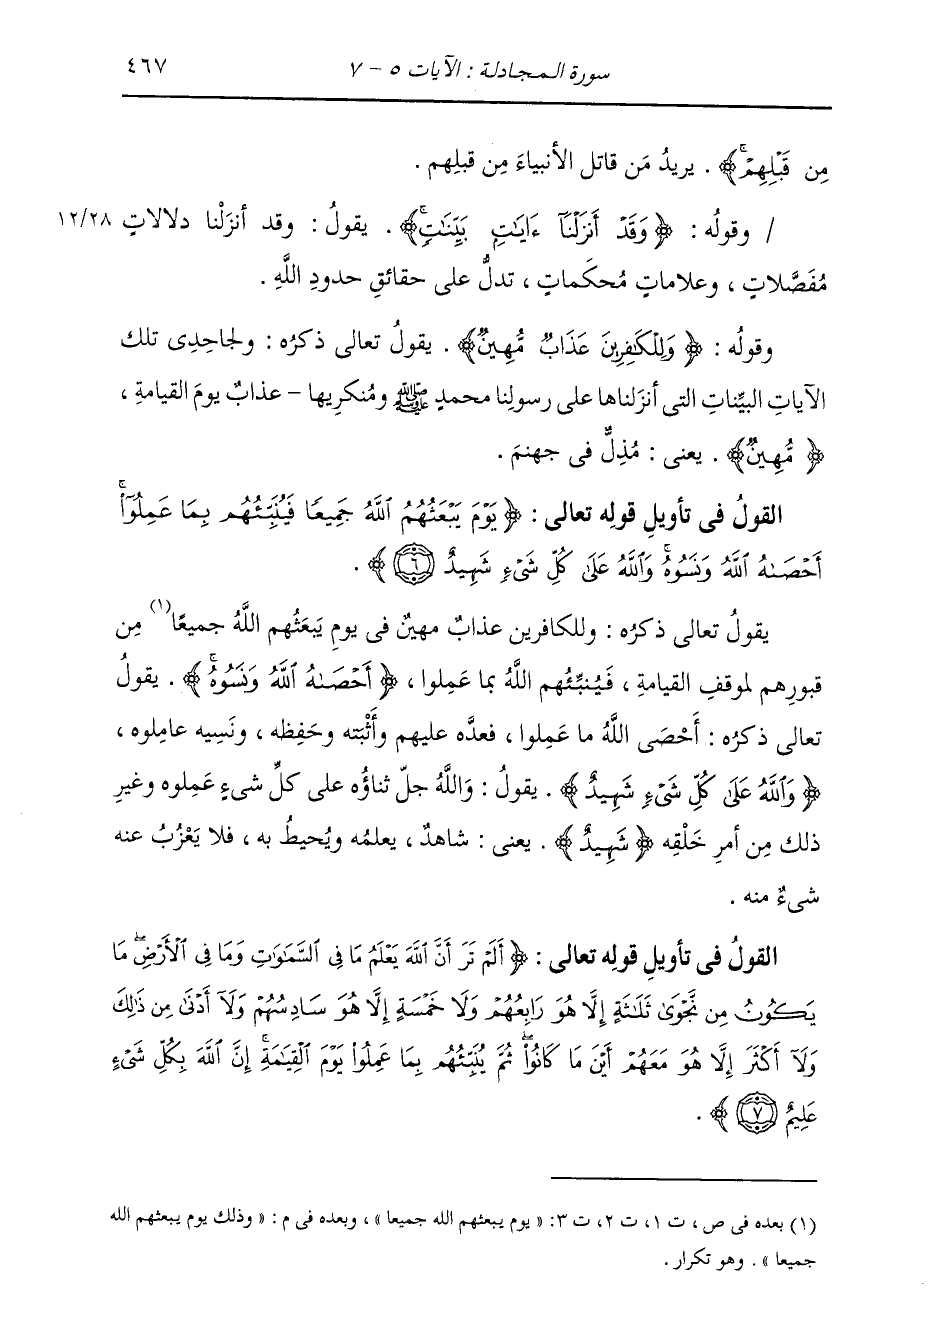 سورة المجادلة : الآيات ٥ - ٧ ٤٦٧
مِن قَبْلِهِمْۚ﴾ . يريدُ مَن قاتل الأنبياءَ مِن قبلِهم .
/ وقولُه : ﴿وَقَدْ أَنزَلْنَآ ءَايَٰتٍۭ بَيِّنَٰتٍۚ﴾ . يقولُ : وقد أنزَلْنا دلالاتٍ ١٢/٢٨
مُفَصَّلاتٍ ، وعلاماتٍ مُحكَماتٍ ، تدلُّ على حقائقِ حدودِ اللَّهِ .
وقولُه : ﴿وَلِلْكَٰفِرِينَ عَذَابٌ مُّهِينٌ﴾ . يقولُ تعالى ذكرُه : ولجاحِدِى تلك
الآياتِ البيِّناتِ التى أنزَلناها على رسولِنا محمدٍ ﷺ ومُنكرِيها - عذابٌ يومَ القيامةِ ،
﴿مُّهِينٌ﴾ . يعنى : مُذِلٌّ فى جهنمَ .
القولُ فى تأويلِ قولِه تعالى : ﴿يَوْمَ يَبْعَثُهُمُ ٱللَّهُ جَمِيعًا فَيُنَبِّئُهُم بِمَا عَمِلُوٓا۟ۚ
أَحْصَىٰهُ ٱللَّهُ وَنَسُوهُۚ وَٱللَّهُ عَلَىٰ كُلِّ شَىْءٍ شَهِيدٌ ٦﴾ .
يقولُ تعالى ذكرُه : وللكافرين عذابٌ مهينٌ فى يومِ يَبعَثُهم اللَّهُ جميعًا(١) مِن
قبورِهم لموقفِ القيامةِ ، فَيُنبِّئُهم اللَّهُ بما عَمِلوا ، ﴿أَحْصَىٰهُ ٱللَّهُ وَنَسُوهُۚ﴾ . يقولُ
تعالى ذكرُه : أَحْصَى اللَّهُ ما عَمِلوا ، فعدَّه عليهم وأَثْبَته وحَفِظه ، ونَسِيه عاملوه ،
﴿وَٱللَّهُ عَلَىٰ كُلِّ شَىْءٍ شَهِيدٌ﴾ . يقولُ : وَاللَّهُ جلّ ثناؤُه على كلِّ شىءٍ عَمِلوه وغيرِ
ذلك مِن أمرِ خَلْقِه ﴿شَهِيدٌ﴾ . يعنى : شاهدٌ ، يعلمُه ويُحيطُ به ، فلا يَعْزُبُ عنه
شىءٌ منه .
القولُ فى تأويلِ قولِه تعالى : ﴿أَلَمْ تَرَ أَنَّ ٱللَّهَ يَعْلَمُ مَا فِى ٱلسَّمَٰوَٰتِ وَمَا فِى ٱلْأَرْضِۖ مَا
يَكُونُ مِن نَّجْوَىٰ ثَلَٰثَةٍ إِلَّا هُوَ رَابِعُهُمْ وَلَا خَمْسَةٍ إِلَّا هُوَ سَادِسُهُمْ وَلَآ أَدْنَىٰ مِن ذَٰلِكَ
وَلَآ أَكْثَرَ إِلَّا هُوَ مَعَهُمْ أَيْنَ مَا كَانُوا۟ۖ ثُمَّ يُنَبِّئُهُم بِمَا عَمِلُوا۟ يَوْمَ ٱلْقِيَٰمَةِۚ إِنَّ ٱللَّهَ بِكُلِّ شَىْءٍ
عَلِيمٌ ٧﴾ .
(١) بعده فى ص ، ت ١، ت ٢، ت ٣: « يوم يبعثهم الله جميعا » ، وبعده فى م : « وذلك يوم يبعثهم الله
جميعا » . وهو تكرار .